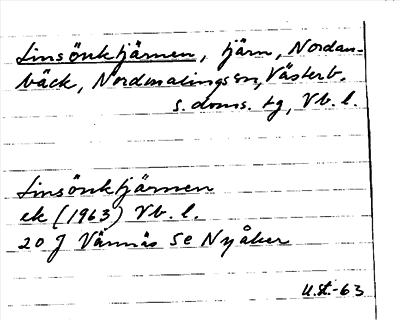 Linsönktjärnen, tjärn, Nordan-
bäck, Nordmalings sn, Västerb.
s. doms. tg, Vb. l.
Linsönktjärnen
ek (1963) Vb. l.
20 J Vännäs Se Nyåker
U.St.-63